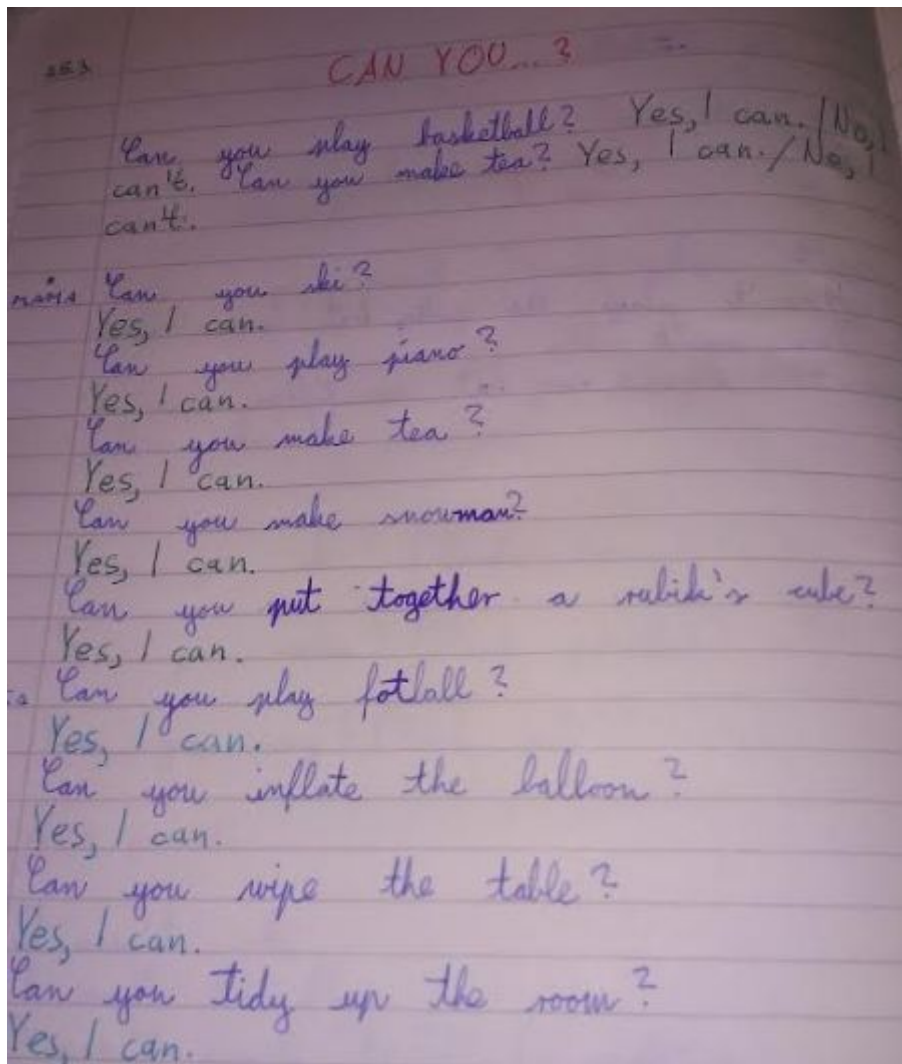 CAN YOU...?
Can you play basketball? Yes, I can. / No, I
can't. Can you make tea? Yes, I can. / No, I
can't.
MAMA Can you ski?
Yes, I can.
Can you play piano?
Yes, I can.
Can you make tea?
Yes, I can.
Can you make snowman?
Yes, I can.
Can you put together a rubik's cube?
Yes, I can.
Can you play fotball?
Yes, I can.
Can you inflate the balloon?
Yes, I can.
Can you wipe the table?
Yes, I can.
Can you tidy up the room?
Yes, I can.